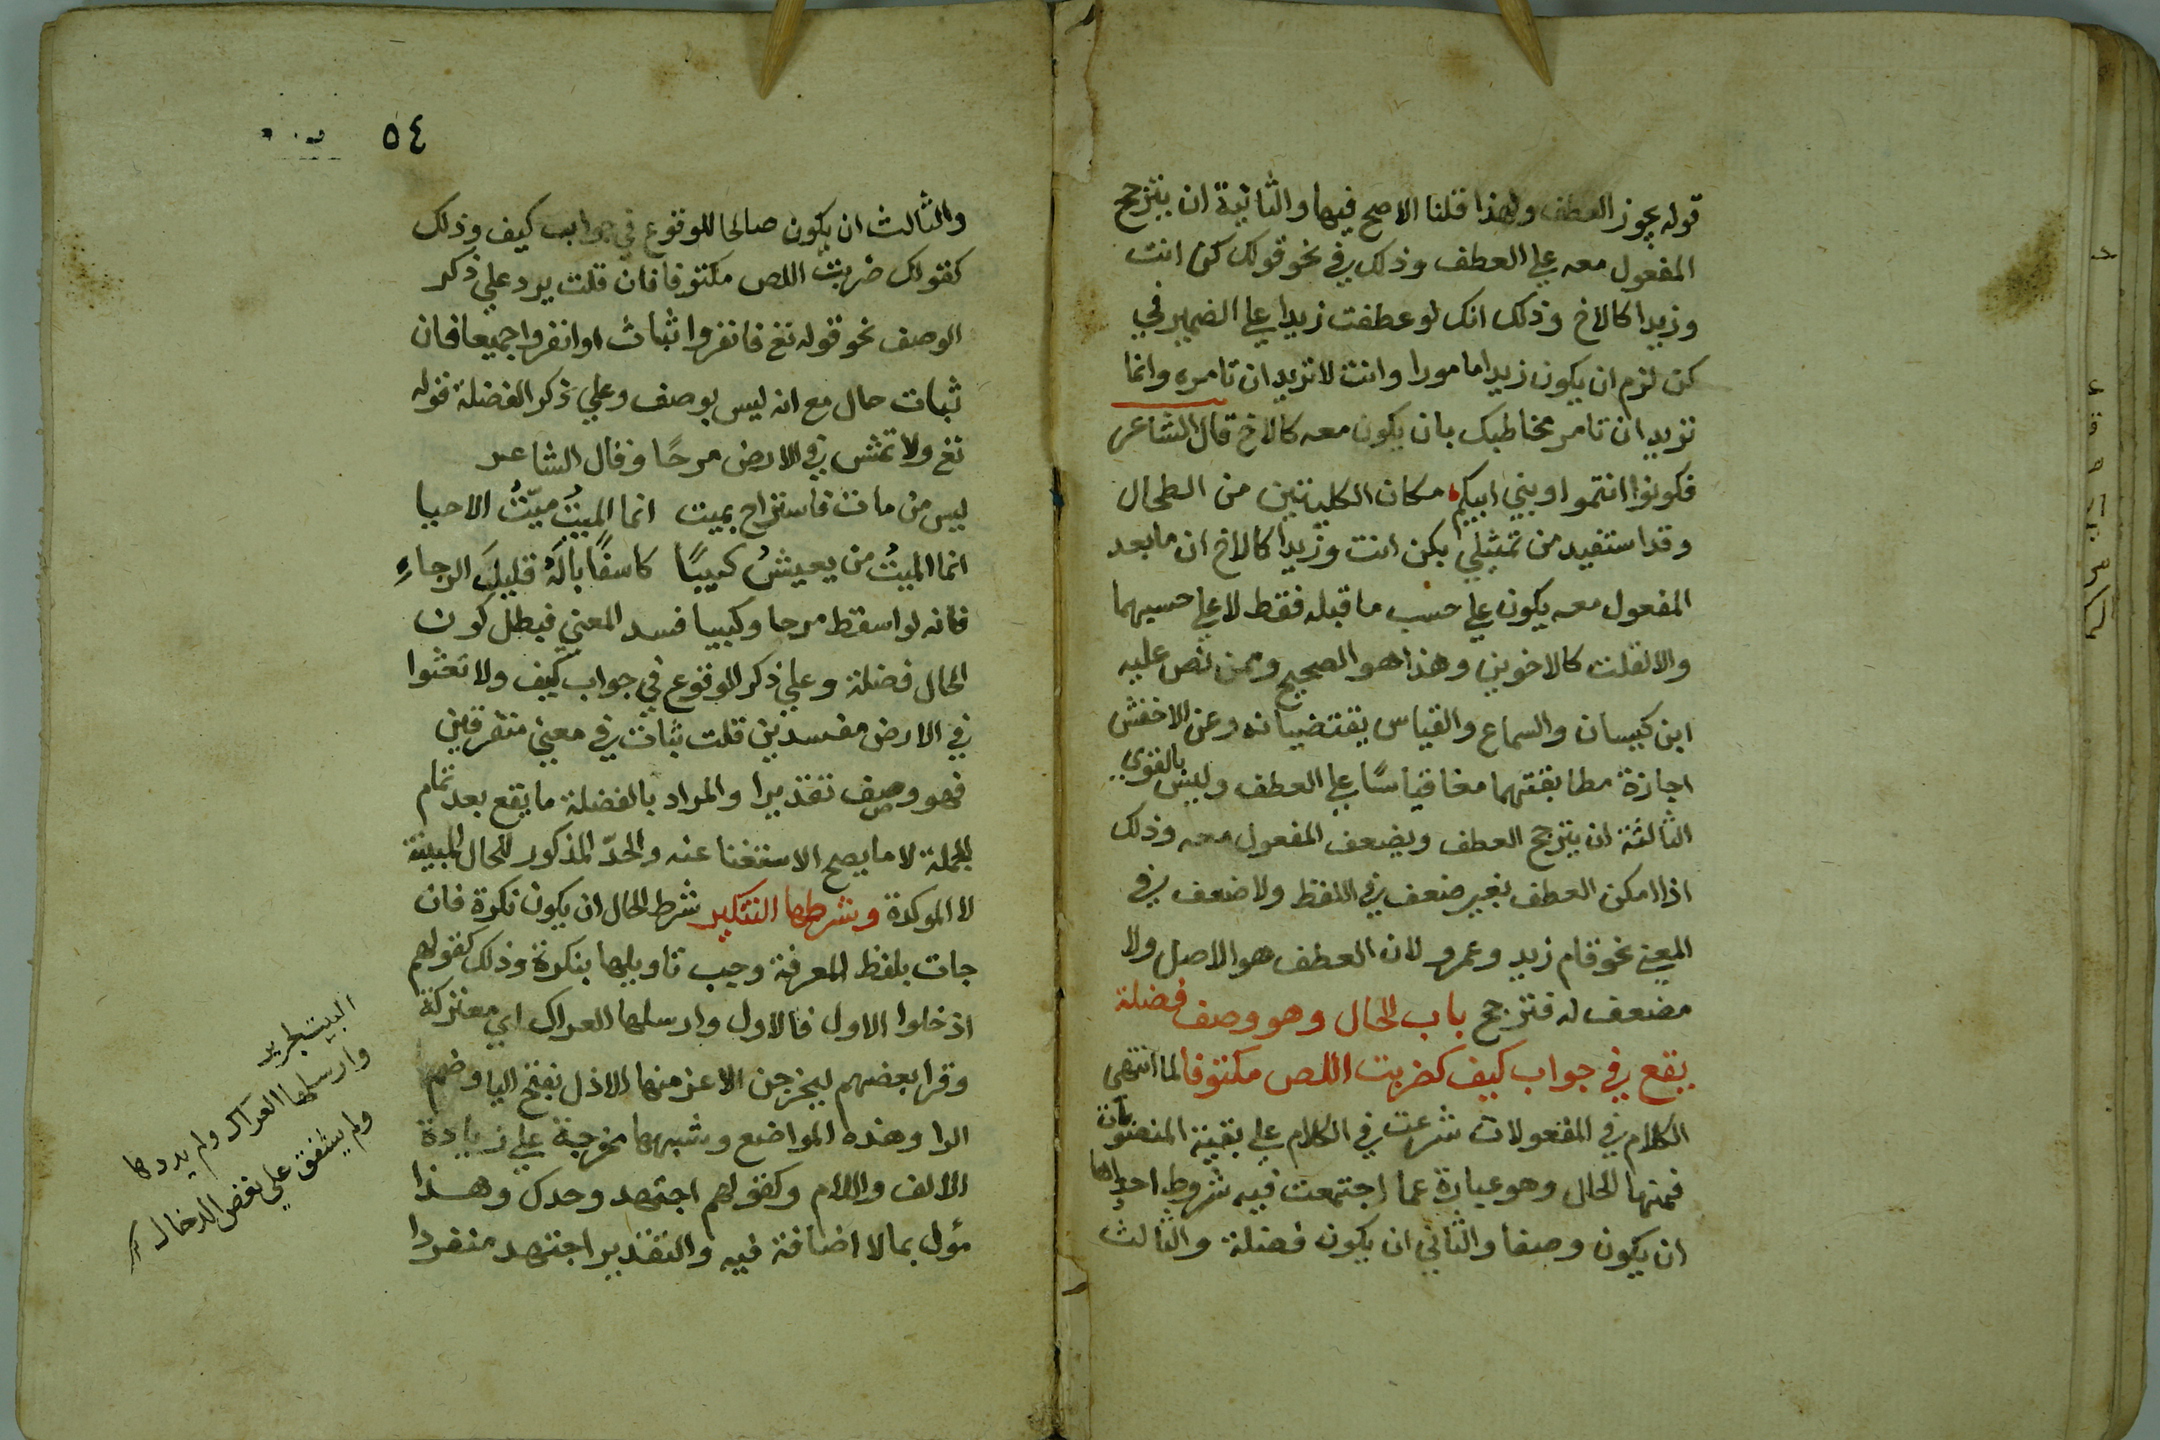 قوله يجوز العطف ولهذا قلنا الاصح فيها والثانية ان يترجح
المفعول معه علي العطف وذلك في نحو قولك كن انت
وزيدا كالاخ وذلك انك لو عطفت زيدا علي الضمير في
كن لزم ان يكون زيدا مامورا وانت لا تريد ان تامره وانما
تريد ان تامر مخاطبك بان يكون معه كالاخ قال الشاعر
فكونوا انتموا وبني ابيكم مكان الكليتين من الطحال
وقد استفيد من تمثيلي بكن انت وزيدا كالاخ ان ما بعد
المفعول معه يكون علي حسب ما قبله فقط لا علي حسبهما
والا لقلت كالاخوين وهذا هو الصحيح وممن نص عليه
ابن كيسان والسماع والقياس يقتضيانه وعن الاخفش
اجازة مطابقتهما معا قياسًا علي العطف وليس بالقوي
الثالثة ان يترجح العطف ويضعف المفعول معه وذلك
اذا امكن العطف بغير ضعف في اللفظ ولا ضعف في
المعني نحو قام زيد وعمرو لان العطف هو الاصل ولا
مضعف له فترجح باب الحال وهو وصف فضلة
يقع في جواب كيف كضربت اللص مكتوفا لما انتهي
الكلام في المفعولات شرعت في الكلام علي بقية المنصوبات
فمنها الحال وهو عبارة عما اجتمعت فيه شروط احداها
ان يكون وصفا والثاني ان يكون فضلة والثالث
٥٤
والثالث ان يكون صالحا للوقوع في جواب كيف وذلك
كقولك ضربت اللص مكتوفا فان قلت يرد علي ذكر
الوصف نحو قوله تع فانفروا ثبات او انفروا جميعا فان
ثبات حال مع انه ليس بوصف وعلي ذكر الفضلة قوله
تع ولا تمش في الارض مرحًا وقال الشاعر
ليس من مات فاستراح بميت انما الميتُ ميّتُ الاحيا
انما الميتُ من يعيشُ كييبًا كاسفًا بالَهُ قليلَ الرجاءِ
فانه لو اسقط مرحا وكييبا فسد المعني فبطل كون
الحال فضلة وعلي ذكر الوقوع في جواب كيف ولا تعثوا
في الارض مفسدين قلت ثبات في معني متفرقين
فهو وصف تقديرا والمراد بالفضلة ما يقع بعد تمام
الجملة لا ما يصح الاستغنا عنه والحدّ المذكور للحال المبينة
لا الموكدة وشرطها التنكير شرط الحال ان يكون نكرة فان
جات بلفظ المعرفة وجب تاويلها بنكرة وذلك كقولهم
ادخلوا الاول فالاول وارسلها العراك اي معتركة
وقرا بعضهم ليخرجن الاعز منها الاذل بفتح اليا وضم
الرا وهذه المواضع وشبهها مخرجة علي زيادة
الالف واللام وكقولهم اجتهد وحدك وهذا
مؤل بما لا اضافة فيه والتقدير اجتهد منفردا
وارسلها العراك ولم يذدها
ولم يشفق علي نغض الدخال